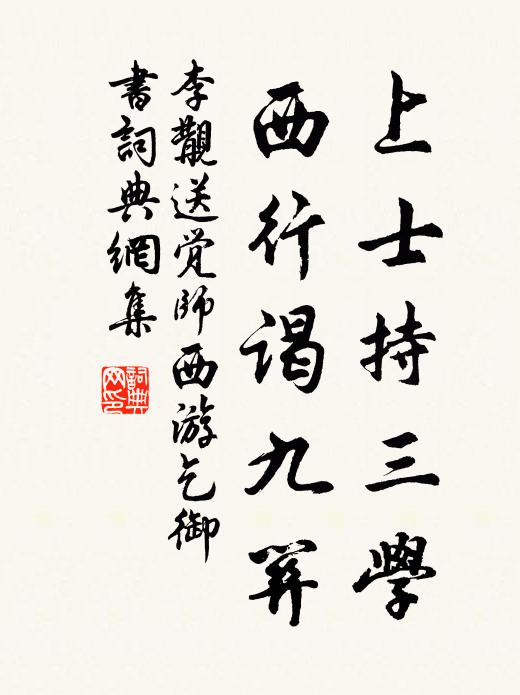 上士持三學
西行謁九關
李覯送覚師西游乞御
書詞典網集
詞典网印